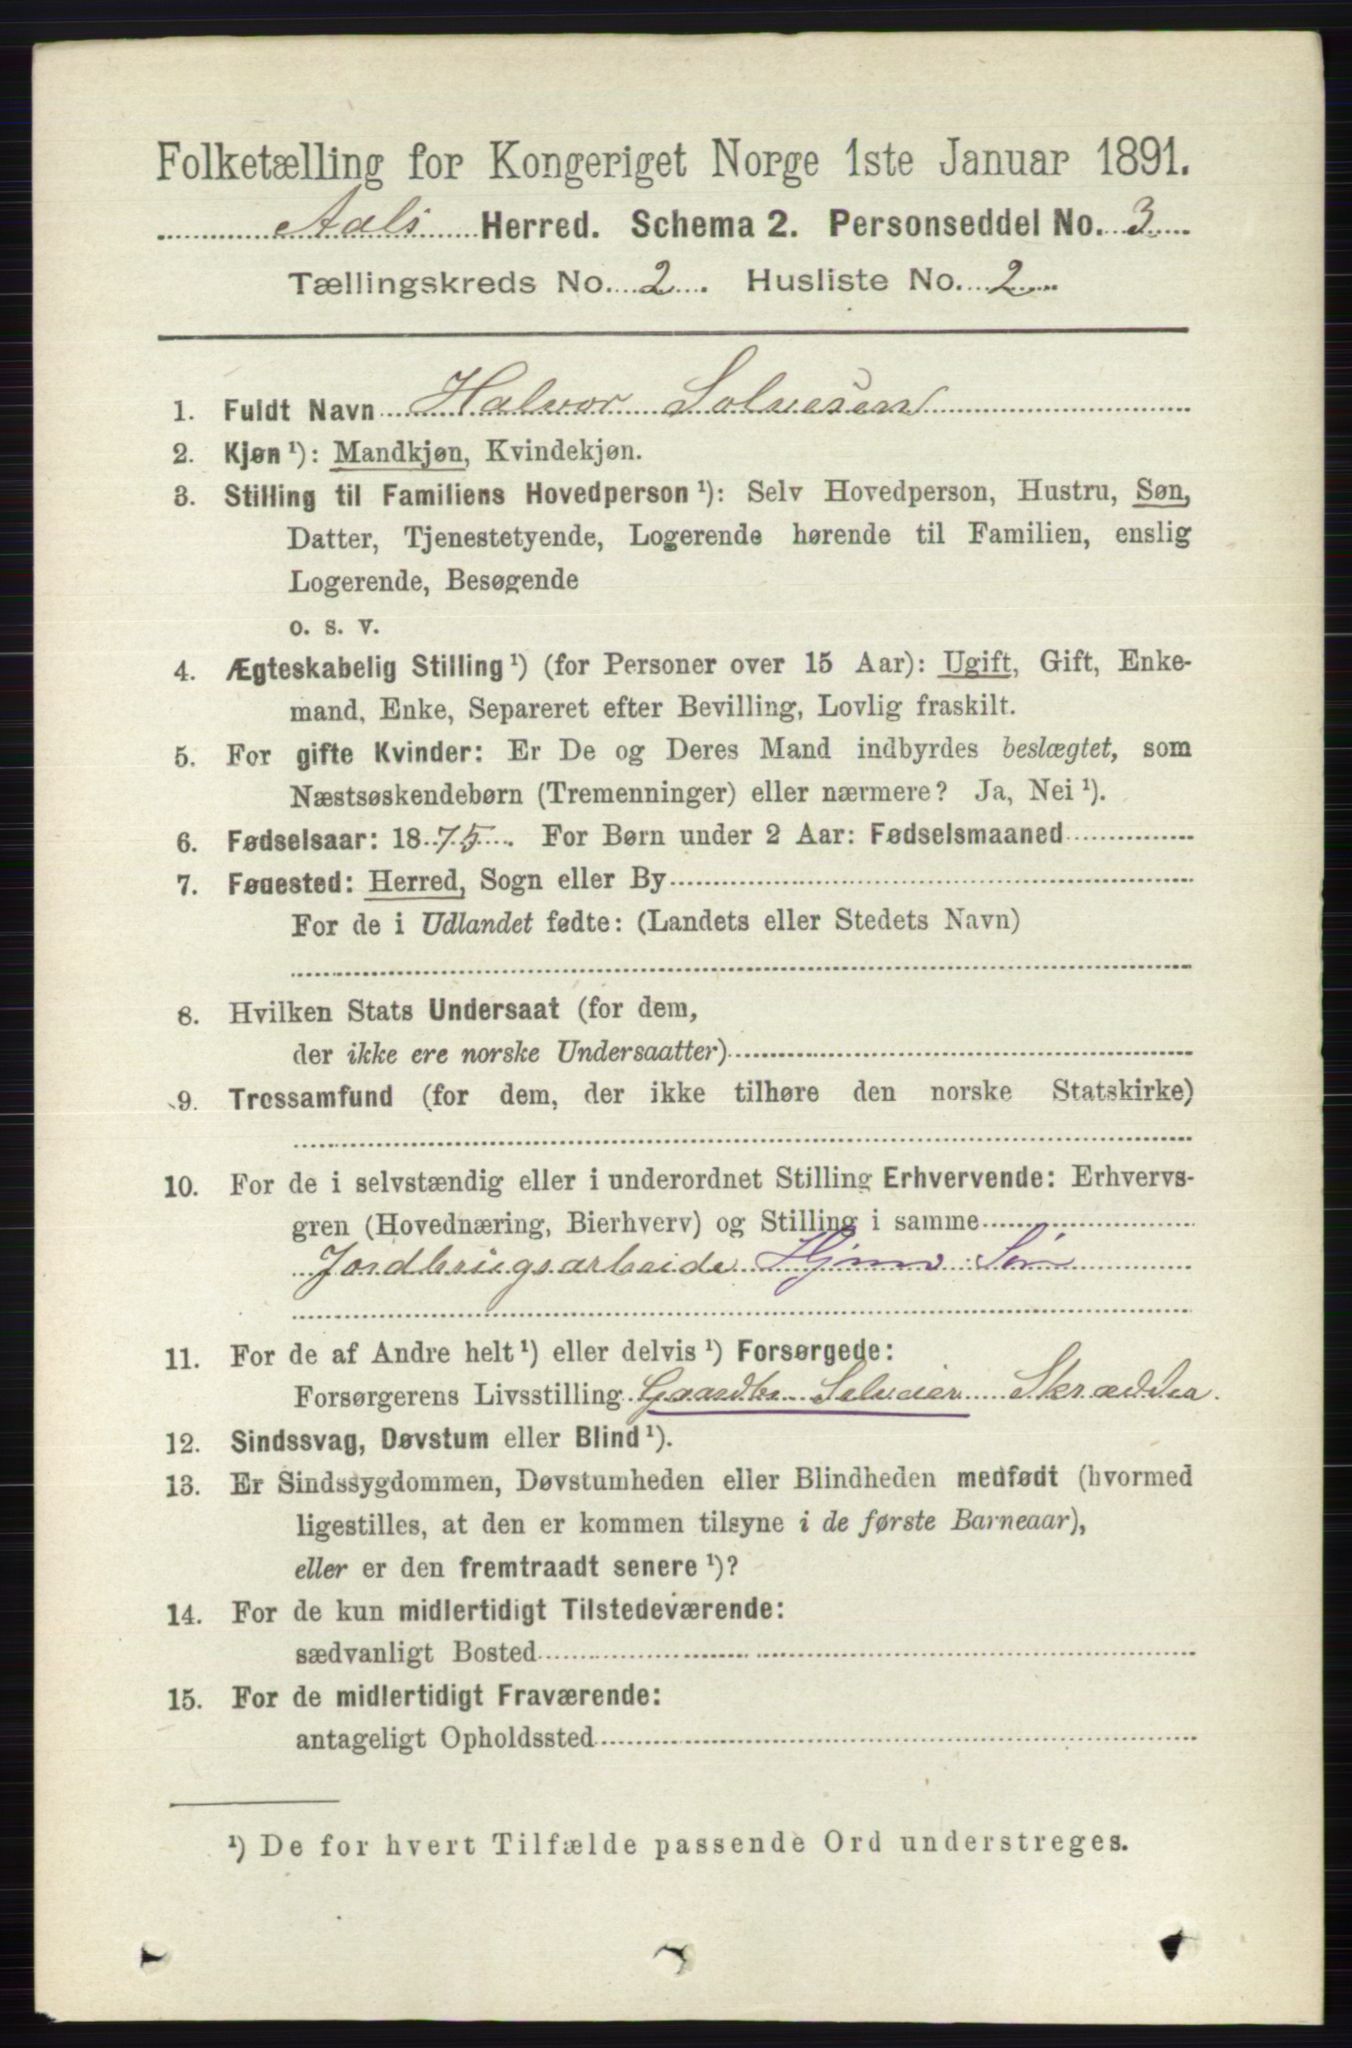 Folketælling for Kongeriget Norge 1ste Januar 1891.
Aals Herred. Schema 2. Personseddel No. 3
Tællingskreds No. 2. Husliste No. 2
1. Fuldt Navn Halvor Solvesen
2. Kjøn ¹): Mandkjøn, Kvindekjøn.
3. Stilling til Familiens Hovedperson ¹): Selv Hovedperson, Hustru, Søn,
Datter, Tjenestetyende, Logerende hørende til Familien, enslig
Logerende, Besøgende
o. s. v.
4. Ægteskabelig Stilling ¹) (for Personer over 15 Aar): Ugift, Gift, Enke-
mand, Enke, Separeret efter Bevilling, Lovlig fraskilt.
5. For gifte Kvinder: Er De og Deres Mand indbyrdes beslægtet, som
Næstsøskendebørn (Tremenninger) eller nærmere? Ja, Nei ¹).
6. Fødselsaar: 1875. For Børn under 2 Aar: Fødselsmaaned
7. Fødested: Herred, Sogn eller By
For de i Udlandet fødte: (Landets eller Stedets Navn)
8. Hvilken Stats Undersaat (for dem,
der ikke ere norske Undersaatter)
9. Trossamfund (for dem, der ikke tilhøre den norske Statskirke)
10. For de i selvstændig eller i underordnet Stilling Erhvervende: Erhvervs-
gren (Hovednæring, Bierhverv) og Stilling i samme
Jordbrugsarbeide
11. For de af Andre helt ¹) eller delvis ¹) Forsørgede:
Forsørgerens Livsstilling Gaardbr Selveier
12. Sindssvag, Døvstum eller Blind ¹).
13. Er Sindssygdommen, Døvstumheden eller Blindheden medfødt (hvormed
ligestilles, at den er kommen tilsyne i de første Barneaar),
eller er den fremtraadt senere ¹)?
14. For de kun midlertidigt Tilstedeværende:
sædvanligt Bosted
15. For de midlertidigt Fraværende:
antageligt Opholdssted
¹) De for hvert Tilfælde passende Ord understreges.